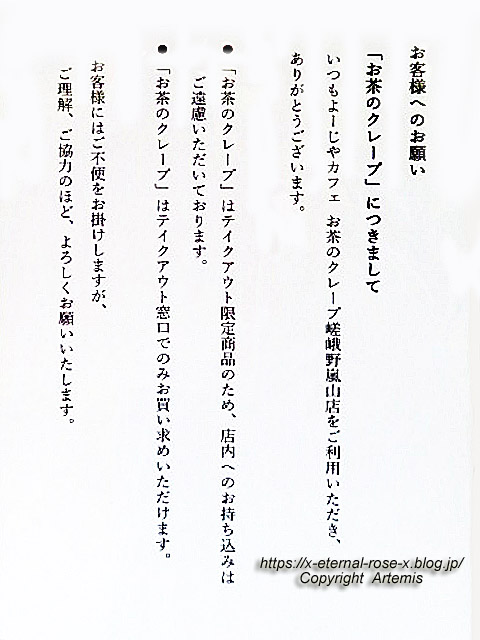 お客様へのお願い
「お茶のクレープ」につきまして
いつもよーじやカフェ お茶のクレープ嵯峨野嵐山店をご利用いただき、
ありがとうございます。
●「お茶のクレープ」はテイクアウト限定商品のため、店内へのお持ち込みは
ご遠慮いただいております。
●「お茶のクレープ」はテイクアウト窓口でのみお買い求めいただけます。
お客様にはご不便をお掛けしますが、
ご理解、ご協力のほど、よろしくお願いいたします。
https://x-eternal-rose-x.blog.jp/
Copyright Artemis